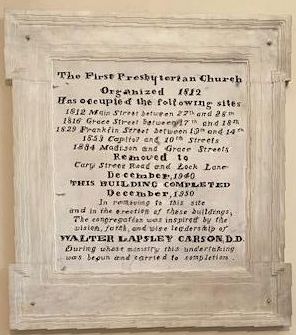 The First Presbyterian Church
Organized 1812
Has occupied the following sites
1812 Main Street between 27th and 28th
1816 Grace Street between 17th and 18th
1829 Franklin Street between 13th and 14th
1853 Capitol and 10th Streets
1884 Madison and Grace Streets
Removed to
Cary Street Road and Lock Lane
December, 1940
THIS BUILDING COMPLETED
December, 1950
In removing to this site
and in the erection of these buildings,
The congregation was inspired by the
vision, faith, and wise leadership of
WALTER LAPSLEY CARSON, D.D.
During whose ministry this undertaking
was begun and carried to completion.